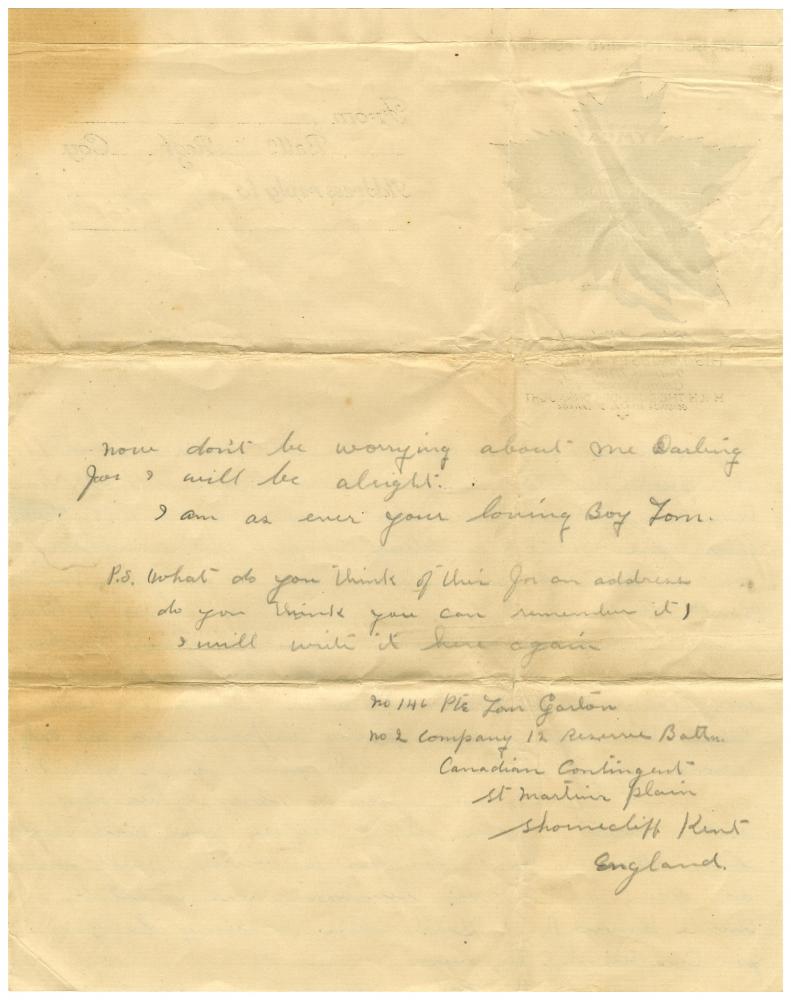 now don't be worrying about me Darling
for I will be alright.
I am as ever your loving Boy Tom.
P.S. What do you think of this for an address
do you think you can remember it,
I will write it here again
No 146 Pte Tom
No 2 Company 12 Reserve Battn.
Canadian Contingent
St Martins Plain
Shornecliff Kent
England.